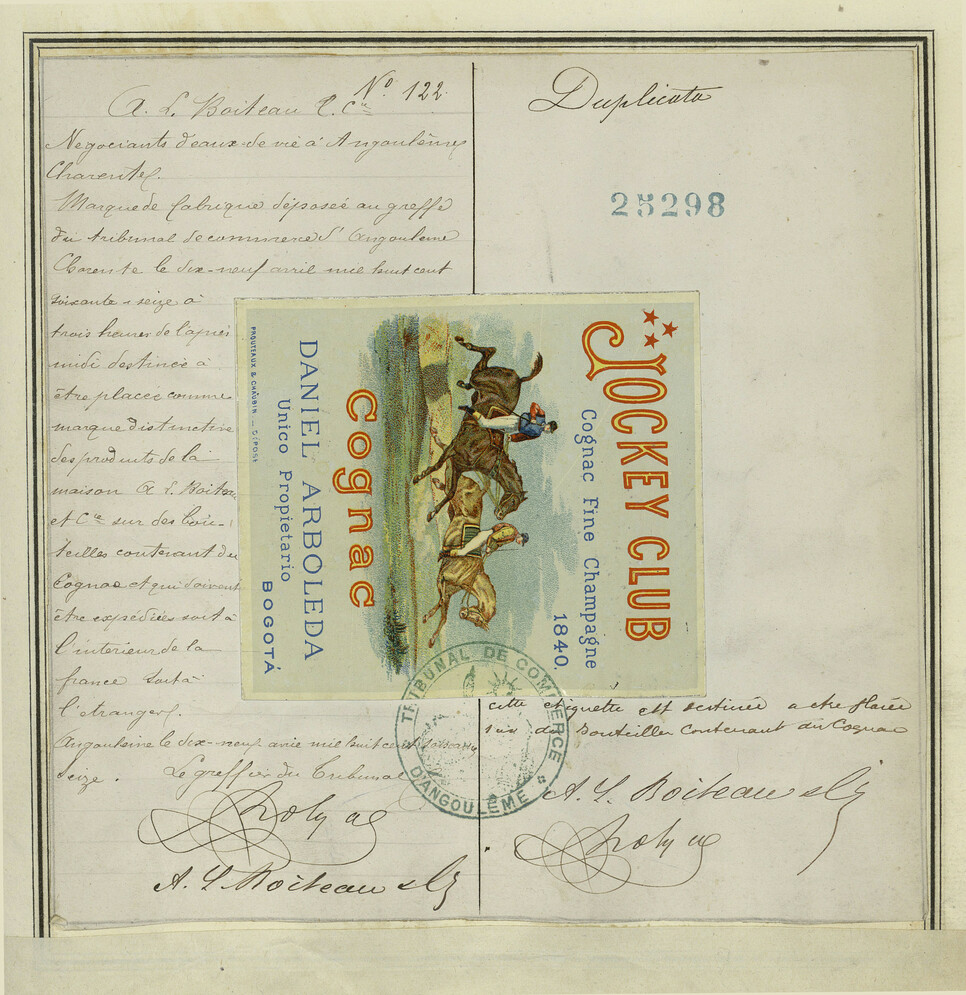 Nº 122
A. L. Boiteau & Cie
Negociants d'eaux-de-vie à Angoulême
Charente.
Marque de fabrique déposée au greffe
du tribunal de commerce d'Angoulême
Charente le dix-neuf avril mil huit cent
soixante-seize à
trois heures de l'après
midi destinée à
être placée comme
marque distinctive
des produits de la
maison A. L. Boiteau
et Cie sur des bou-
teilles contenant du
Cognac et qui doivent
être expédiées soit à
l'intérieur de la
france soit à
l'étranger.
Angoulême le dix-neuf avril mil huit cent soixante
seize. Le greffier du Tribunal
A. L. Boiteau & Cie
Duplicata
25298
JOCKEY CLUB
Cognac Fine Champagne
1840.
Cognac
DANIEL ARBOLEDA
Unico Propietario
BOGOTÁ
PROUTEAUX & CHAUBIN _ DÉPOSÉ
TRIBUNAL DE COMMERCE
D'ANGOULÊME
cette etiquette est destinée a etre placée
sur des Bouteilles contenant du Cognac
A. L. Boiteau & Cie